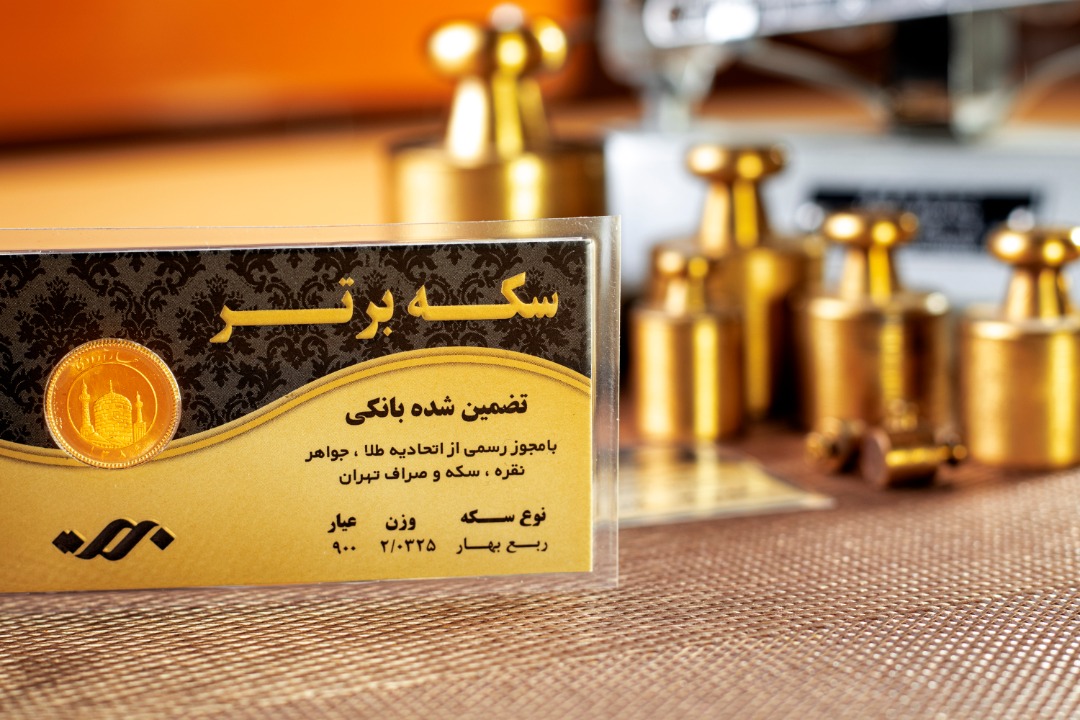 سکه برتر
تضمین شده بانکی
بامجوز رسمی از اتحادیه طلا ، جواهر
نقره ، سکه و صراف تهران
نوع سکه وزن عیار
ربع بهار ۲/۰۳۲۵ ۹۰۰